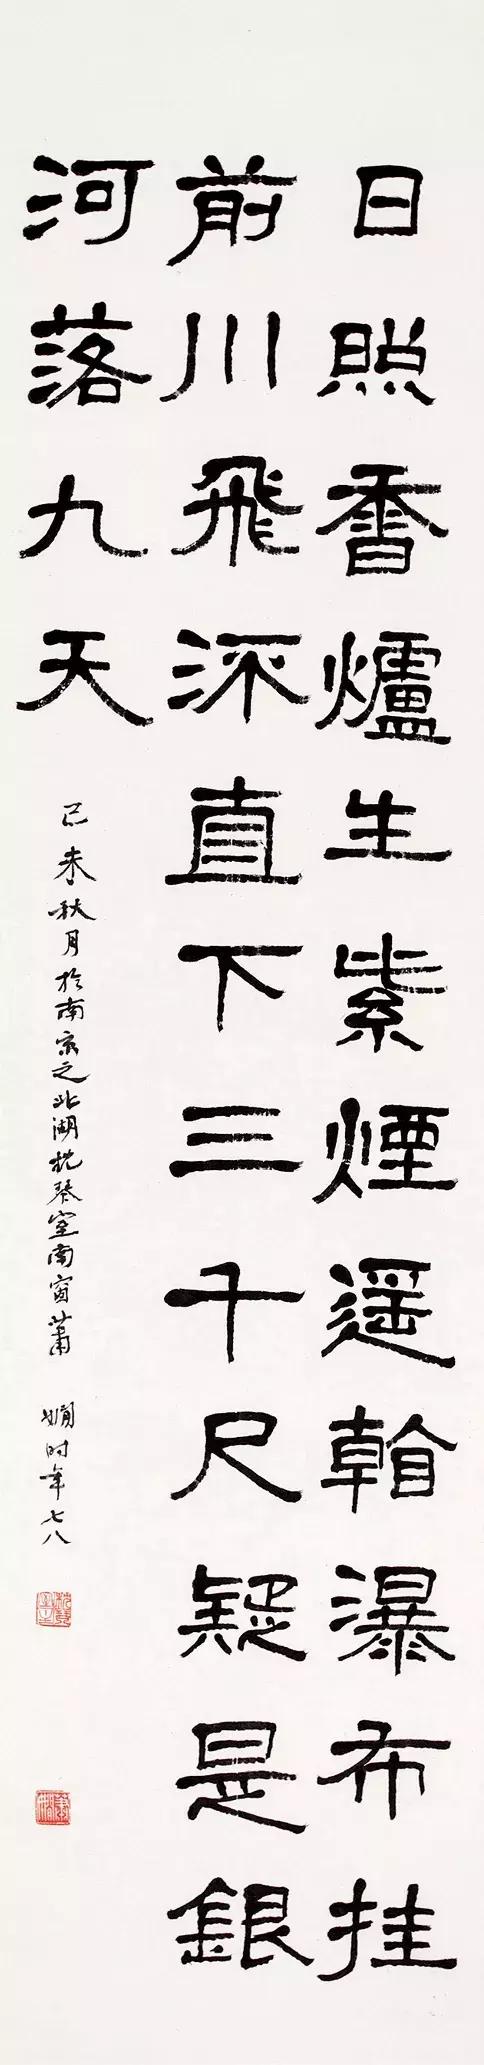 日照香爐生紫煙遥看瀑布挂
前川飛流直下三千尺疑是銀
河落九天
己未秋月於南京之北湖枕琴室南窗蕭嫻时年七八
蕭嫻